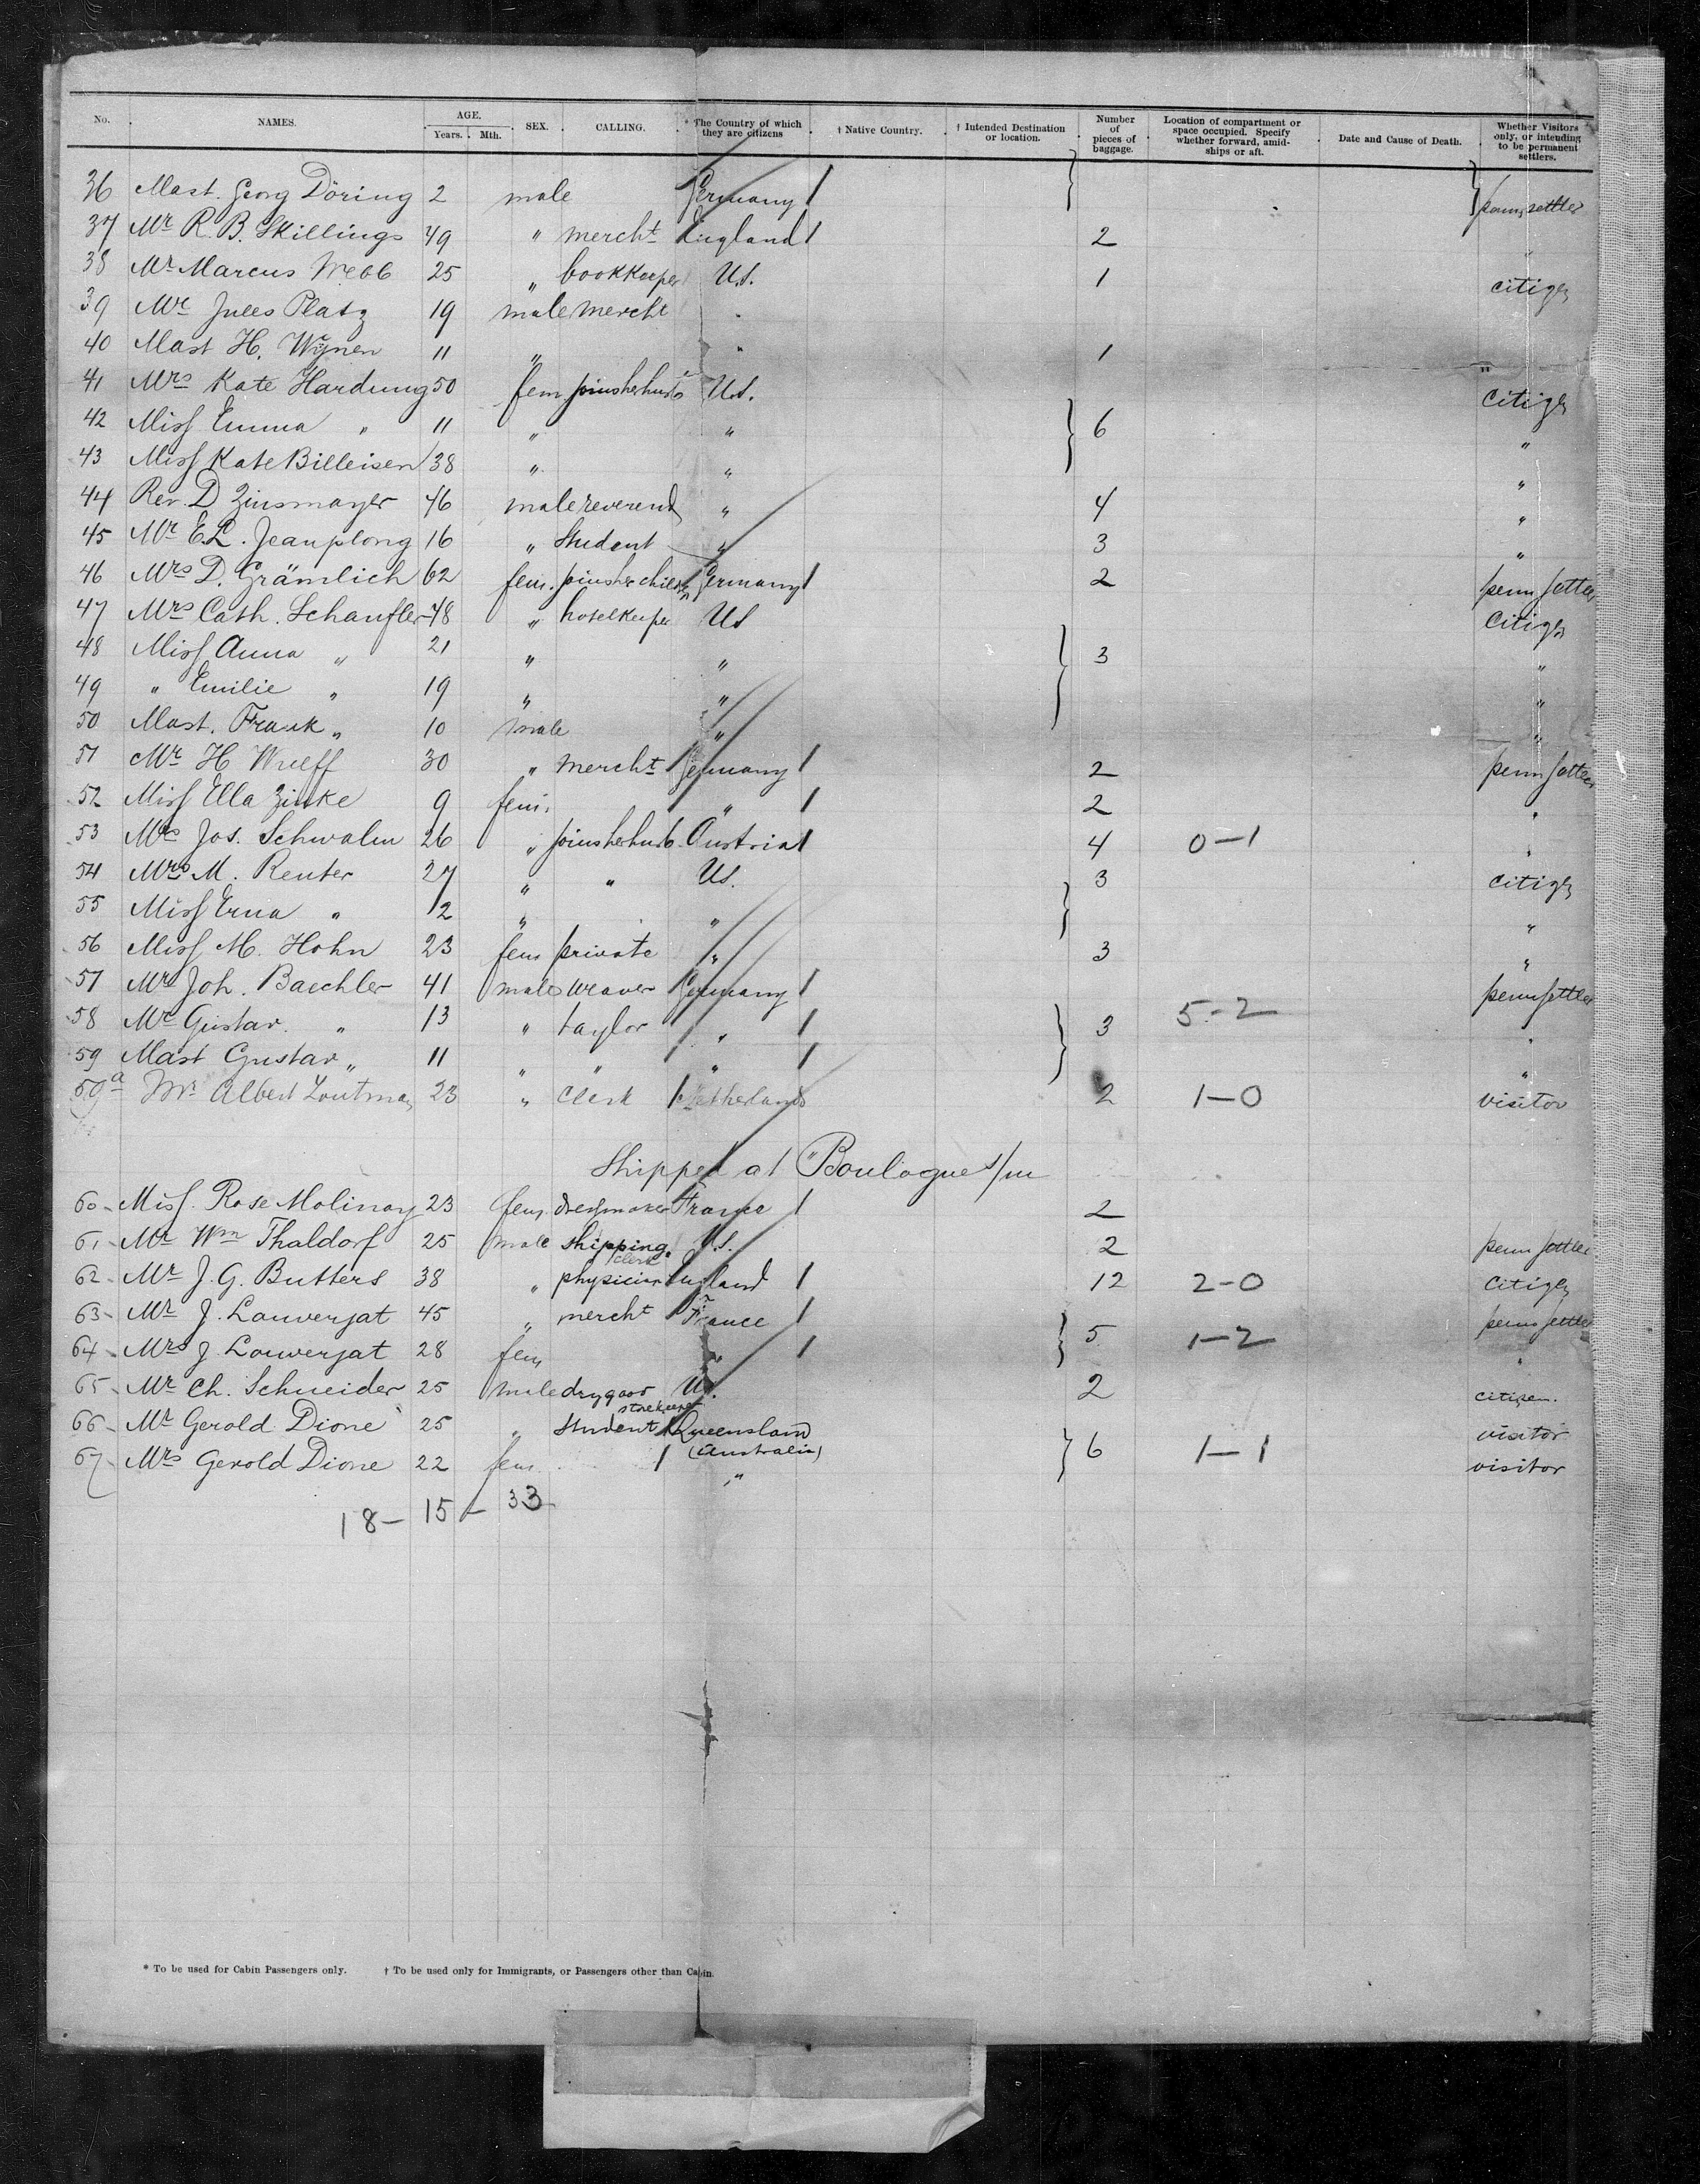 No. NAMES. AGE. Years. Mth. SEX. CALLING. * The Country of which they are citizens † Native Country. † Intended Destination or location. Number of pieces of baggage. Location of compartment or space occupied. Specify whether forward, amidships or aft. Date and Cause of Death. Whether Visitors only, or intending to be permanent settlers.
36 Mast. Georg Döring 2 male Germany perm. settler
37 Mr R. B. Skillings 49 " mercht England 2 "
38 Mr Marcus Webb 25 " bookkeeper U.S. 1 citizen
39 Mr Jules Platz 19 male mercht "
40 Mast H. Wynen 11 " " 1 "
41 Mrs Kate Hardung 50 fem joins her husb U.S. citizen
42 Miss Emma " 11 " " 6 "
43 Miss Kate Billeisen 38 " " "
44 Rev. D Zinsmayer 46 male reverend " 4 "
45 Mr E. L. Jeanplong 16 " Student " 3 "
46 Mrs D. Grämlich 62 fem. joins her children Germany 2 perm settler
47 Mrs Cath. Schaufler 48 " hotelkeeper US citizen
48 Miss Anna " 21 " " 3 "
49 " Emilie " 19 " " "
50 Mast. Frank " 10 male " "
51 Mr H Wulff 30 " mercht Germany 2 perm settler
52 Miss Ella Zinke 9 fem. " 2 "
53 Mrs Jos. Schwalm 26 " joins her husb. Austria 4 0-1 "
54 Mrs M. Reuter 27 " " US. 3 citizen
55 Miss Erna " 2 " " "
56 Miss M. Hohn 23 fem private " 3 "
57 Mr Joh. Baechler 41 male weaver Germany perm settler
58 Mr Gustav. " 13 " taylor " 3 5-2 "
59 Mast Gustav " 11 " " " "
59a Mr Albert Zoutman 23 " Clerk Netherlands 2 1-0 visitor
Shipped at Boulogne s/m
60 Miss. Rose Molinay 23 fem. dressmaker France 2
61 Mr Wm Thaldorf 25 male shipping clerk U.S. 2 perm settler
62 Mr J. G. Butters 38 " physician England 12 2-0 citizen
63 Mr J. Lauverjat 45 " mercht France perm settler
64 Mrs J. Lauverjat 28 fem " 5 1-2 "
65 Mr Ch. Schneider 25 male drygood storekeeper US. 2 citizen.
66 Mr Gerold Dione 25 " Student Queensland visitor
(Australia)
67 Mrs Gerold Dione 22 fem " 6 1-1 visitor
18- 15- 33
* To be used for Cabin Passengers only. † To be used only for Immigrants, or Passengers other than Cabin.